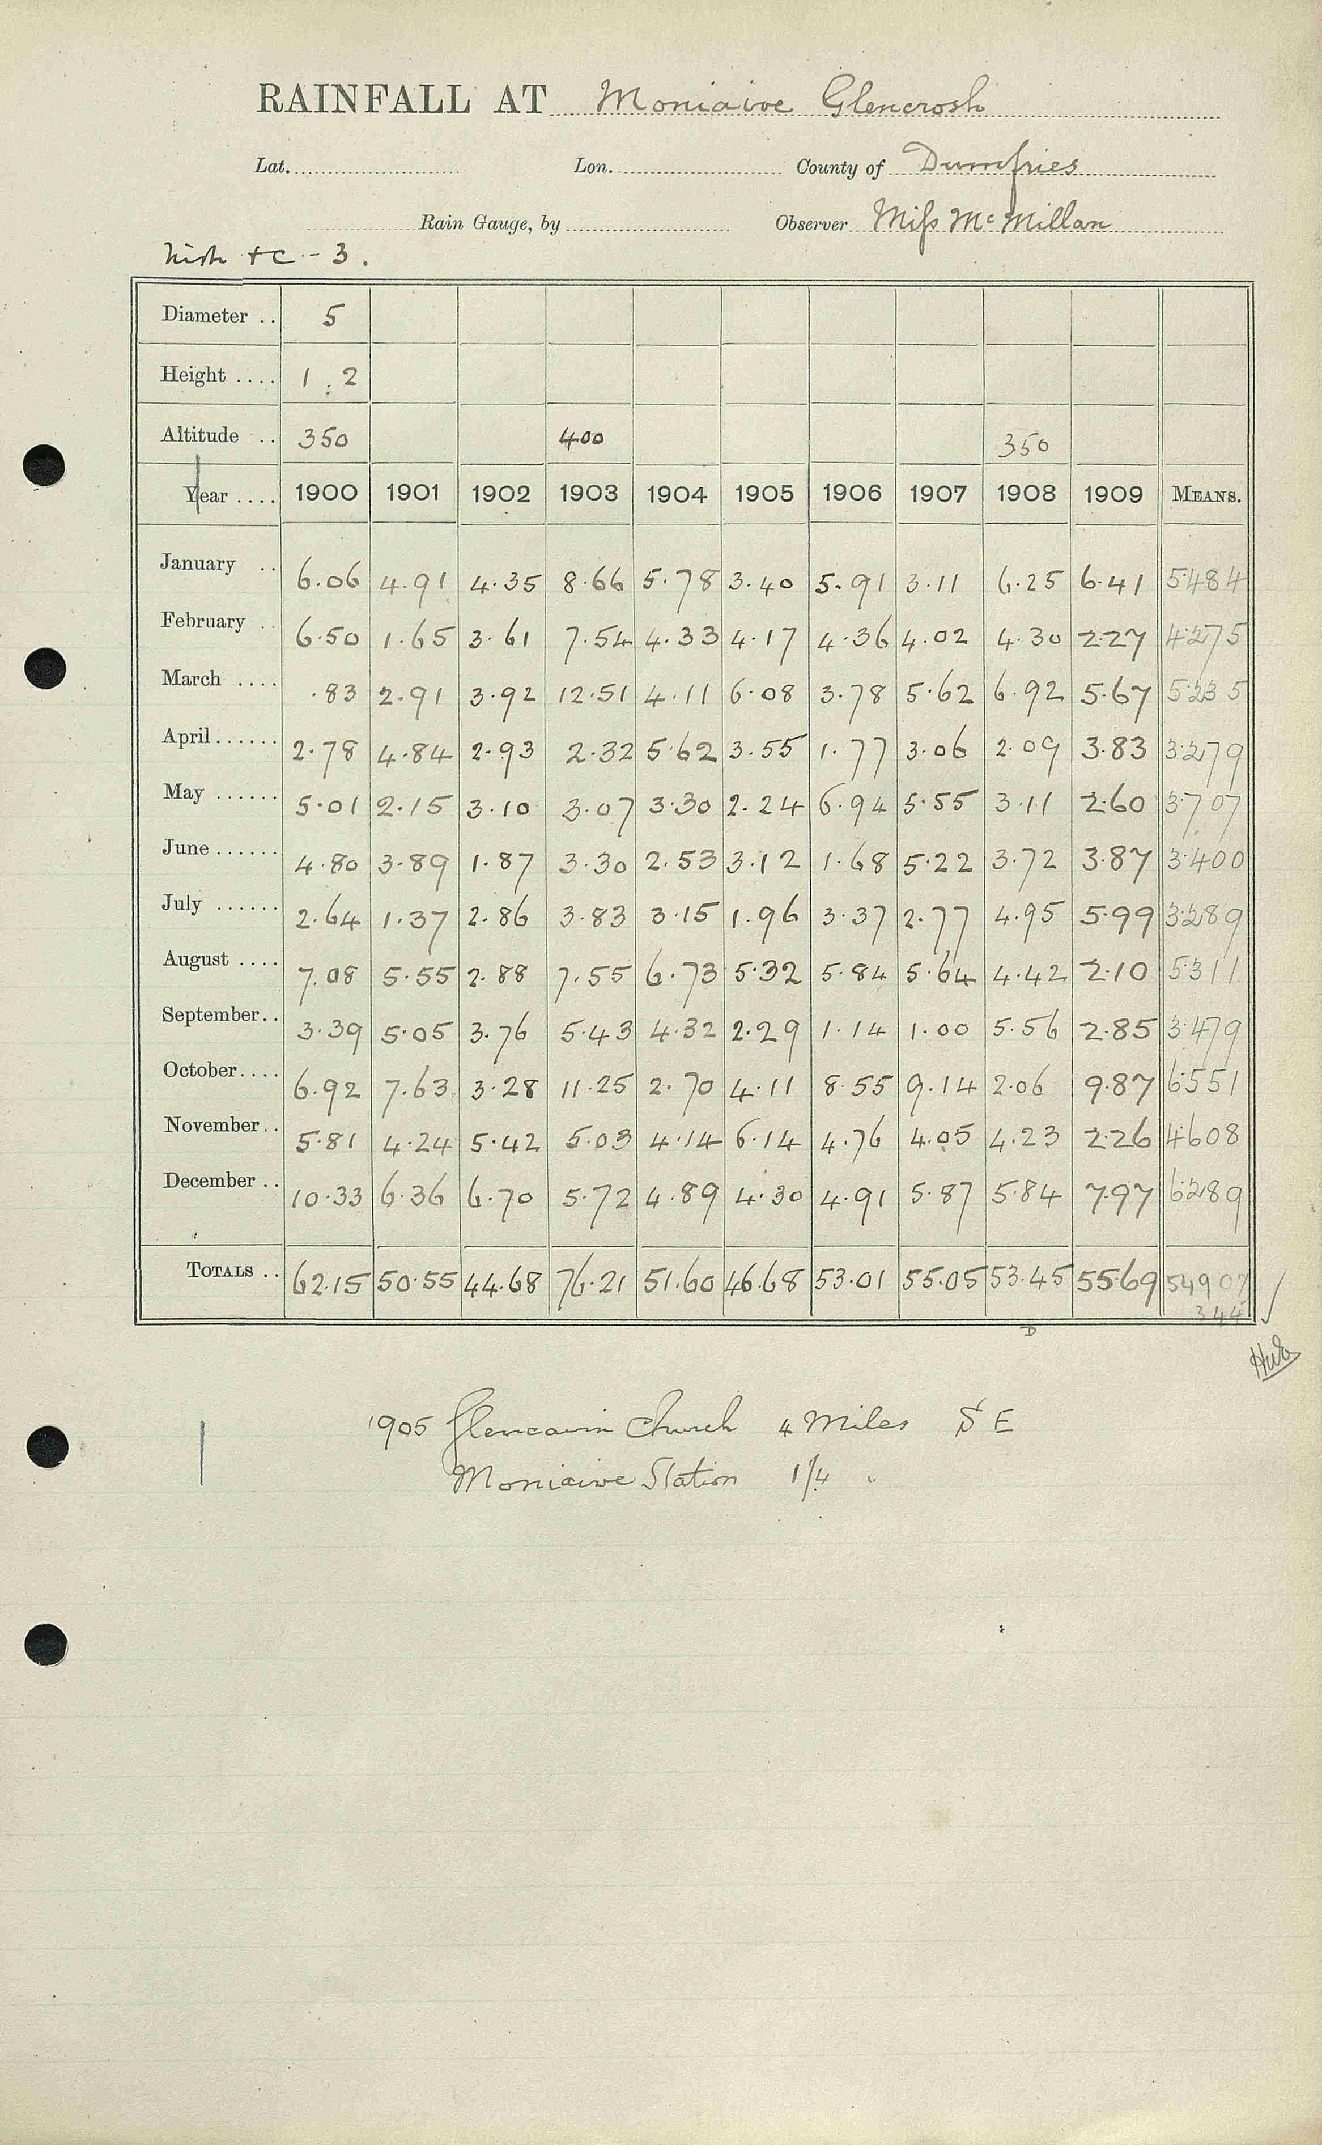 RAINFALL AT Moniaive Glencrosh
Lat. Lon. County of Dumfries
Rain Gauge, by Observer Miss McMillan
Diameter .. 5
Height .... 1 . 2
Altitude .. 350 400 350
Year .... 1900 1901 1902 1903 1904 1905 1906 1907 1908 1909 MEANS.
January .. 6.06 4.91 4.35 8.66 5.78 3.40 5.91 3.11 6.25 6.41 5.484
February .. 6.50 1.65 3.61 7.54 4.33 4.17 4.36 4.02 4.30 2.27 4.275
March .... .83 2.91 3.92 12.51 4.11 6.08 3.78 5.62 6.92 5.67 5.235
April ...... 2.78 4.84 2.93 2.32 5.62 3.55 1.77 3.06 2.09 3.83 3.279
May ...... 5.01 2.15 3.10 3.07 3.30 2.24 6.94 5.55 3.11 2.60 3.707
June ...... 4.80 3.89 1.87 3.30 2.53 3.12 1.68 5.22 3.72 3.87 3.400
July ...... 2.64 1.37 2.86 3.83 3.15 1.96 3.37 2.77 4.95 5.99 3.289
August .... 7.08 5.55 2.88 7.55 6.73 5.32 5.84 5.64 4.42 2.10 5.311
September .. 3.39 5.05 3.76 5.43 4.32 2.29 1.14 1.00 5.56 2.85 3.479
October .... 6.92 7.63 3.28 11.25 2.70 4.11 8.55 9.14 2.06 9.87 6.551
November .. 5.81 4.24 5.42 5.03 4.14 6.14 4.76 4.05 4.23 2.26 4.608
December .. 10.33 6.36 6.70 5.72 4.89 4.30 4.91 5.87 5.84 7.97 6.289
TOTALS .. 62.15 50.55 44.68 76.21 51.60 46.68 53.01 55.05 53.45 55.69 54907
344
D
1905 Glencairn Church 4 Miles S E
Moniaive Station 1 1/4 "